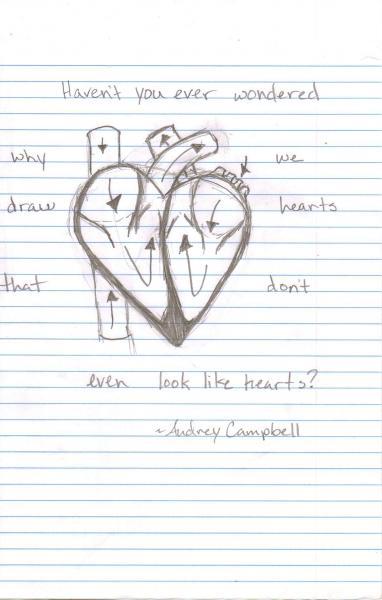 Haven't you ever wondered
why we
draw hearts
that don't
even look like hearts?
~Audrey Campbell